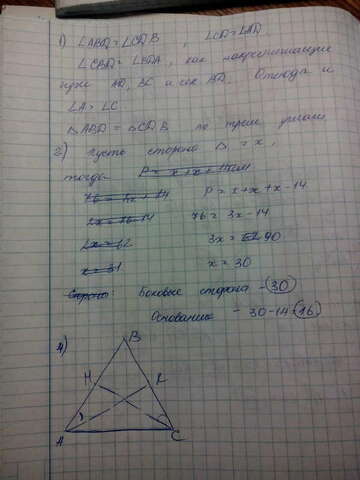 1) ∠ABD = ∠CDB , ∠CD = ∠AD
∠CBD = ∠BDA, как накрест лежащие
при AD, BC и сек AD. Отсюда и
∠A = ∠C
△ABD = △CDB по трем углам
2) Пусть сторона = x,
тогда P = x+x+14см
76 = 2x + 14 P = x+x+x-14
2x = 76-14 76 = 3x-14
2x = 62 3x = 62 90
x = 31 x = 30
: Боковые сторона - 30
Основание - 30-14=16
4)
B
H K
A C